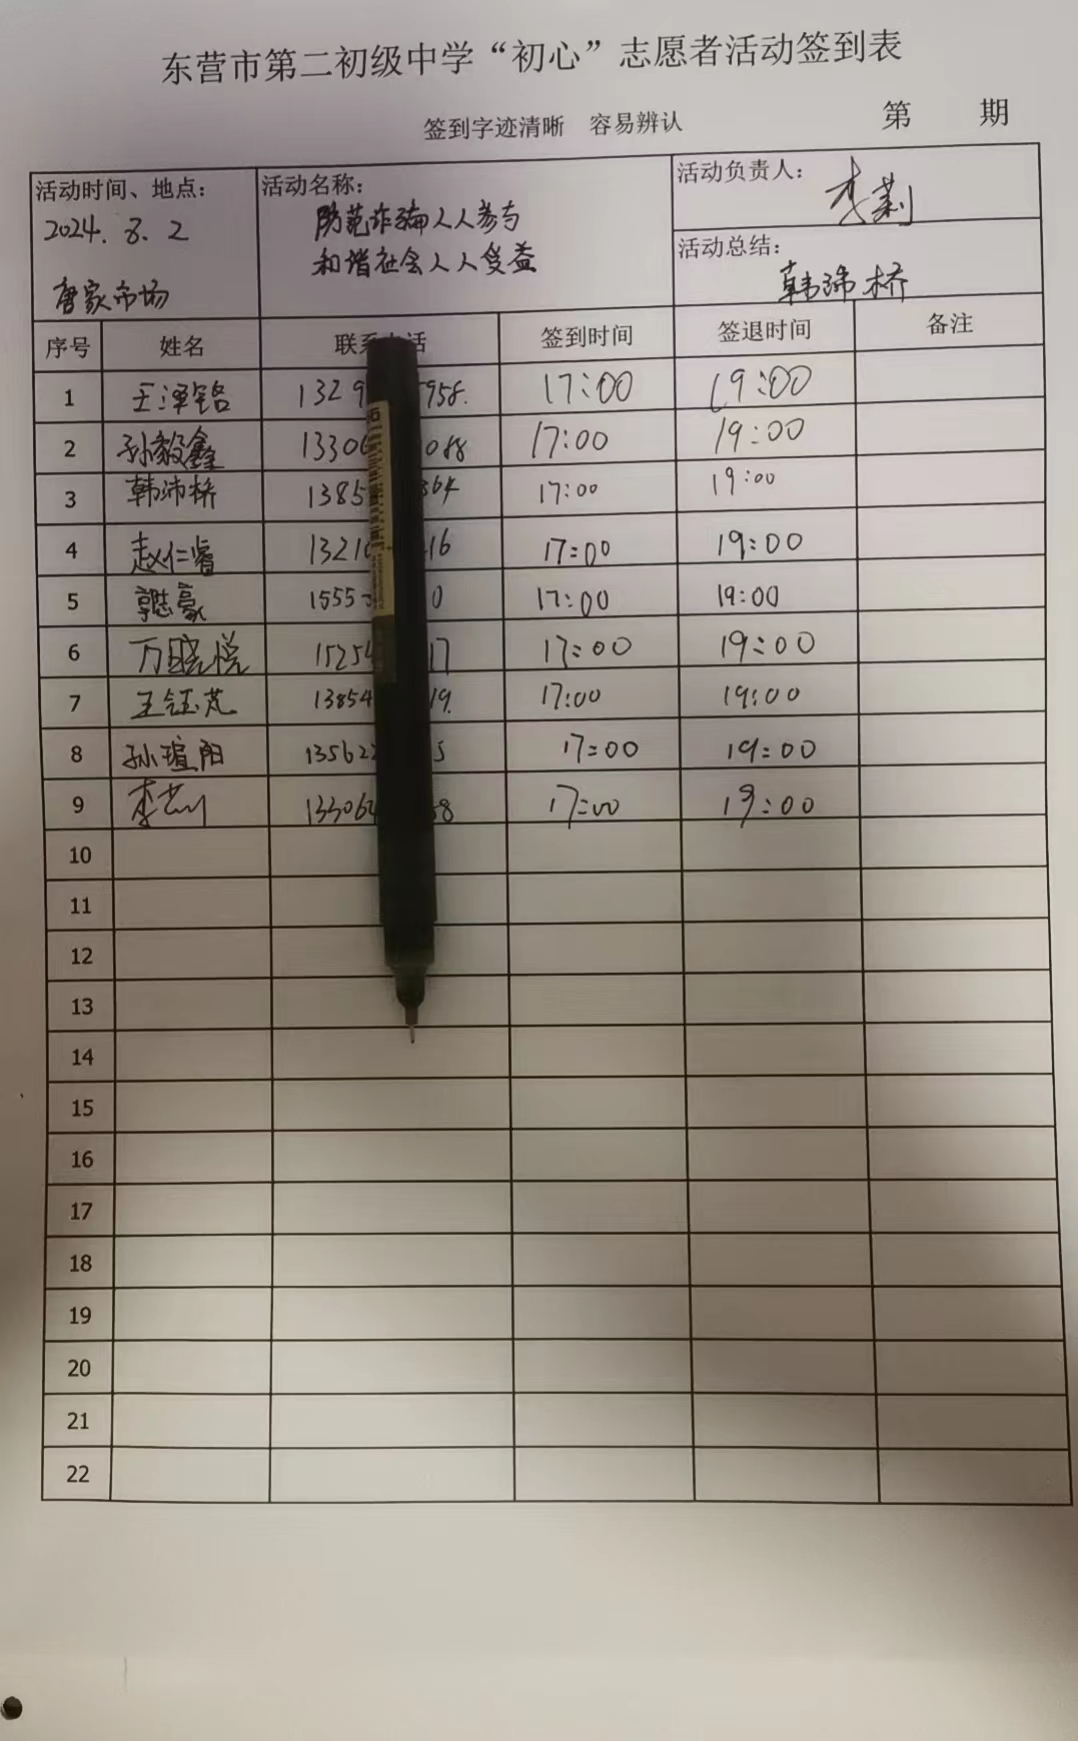 东营市第二初级中学“初心”志愿者活动签到表
签到字迹清晰 容易辨认
第 期
活动时间、地点：
2024. 8. 2
唐家市场
活动名称：
防范诈骗人人参与
和谐社会人人受益
活动负责人：
李莉
活动总结：
韩沛桥
序号 姓名 联系电话 签到时间 签退时间 备注
1 王泽铭 1329 958. 17:00 19:00
2 孙毅鑫 1330 088 17:00 19:00
3 韩沛桥 1385 364 17:00 19:00
4 赵仁睿 1321 16 17:00 19:00
5 郭懿豪 1555 0 17:00 19:00
6 万晓悦 15254 17 17:00 19:00
7 王钰芃 13854 19. 17:00 19:00
8 孙瑄阳 13562 5 17:00 19:00
9 李莉 13306 58 17:00 19:00
10
11
12
13
14
15
16
17
18
19
20
21
22